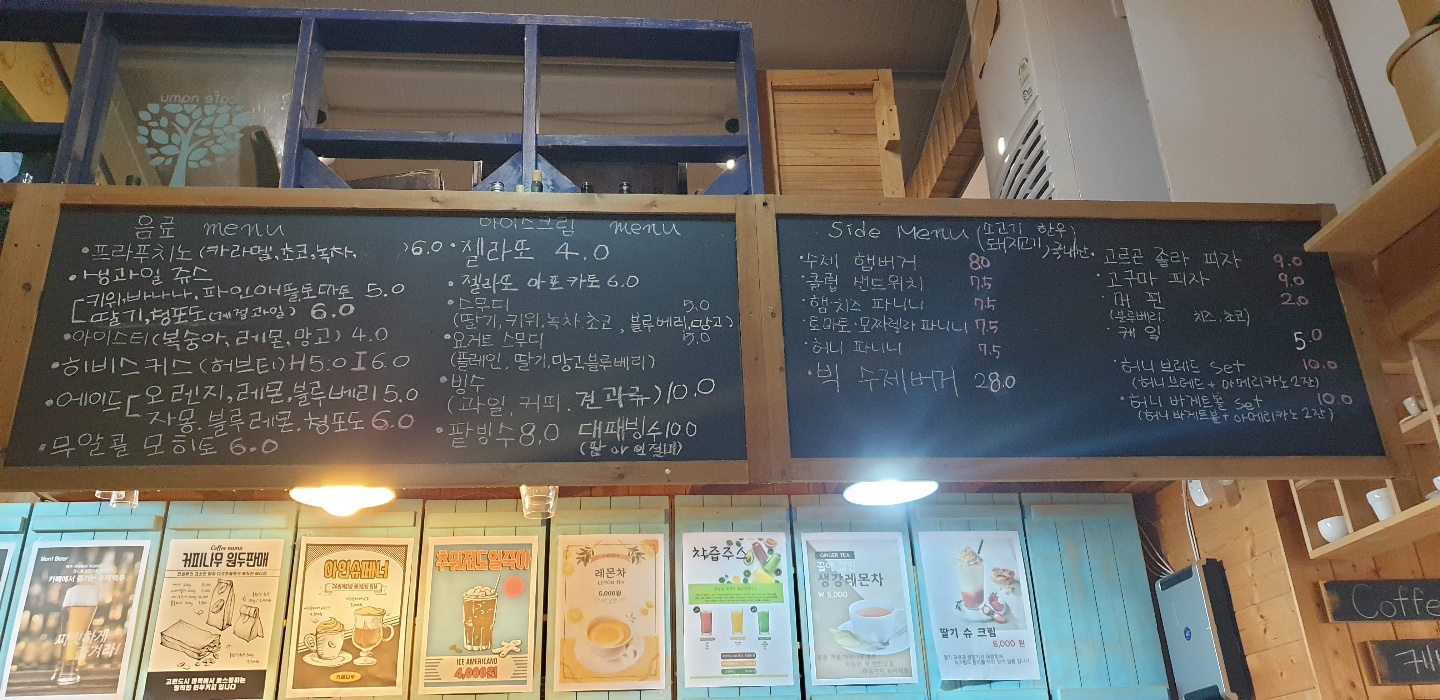 cafe namu
음료 menu
• 프라푸치노 (카라멜, 초코, 녹차, ) 6.0
• 생과일 쥬스
[키위, 바나나, 파인애플, 토마토 5.0
딸기, 청포도 (계절과일) 6.0
• 아이스티 (복숭아, 레몬, 망고) 4.0
• 히비스커스 (허브티) H5.0 I6.0
• 에이드 [오렌지, 레몬, 블루베리 5.0
자몽. 블루레몬. 청포도 6.0
• 무알콜 모히토 6.0
아이스크림 menu
• 젤라또 4.0
• 젤라또 아포카토 6.0
• 스무디 5.0
(딸기, 키위, 녹차. 초코, 블루베리, 망고)
• 요거트 스무디 5.0
(플레인, 딸기, 망고 블루베리)
• 빙수
(과일, 커피. 견과류) 10.0
• 팥빙수 8.0 대패빙수 10.0
(팥 or 인절미)
Side Menu (쇠고기 한우 돼지고기) 국내산
• 수제 햄버거 8.0
• 클럽 샌드위치 7.5
• 햄·치즈 파니니 7.5
• 토마토·모짜렐라 파니니 7.5
• 허니 파니니 7.5
• 빅 수제버거 28.0
• 고르곤 졸라 피자 9.0
• 고구마 피자 9.0
• 머핀 2.0
(블루베리. 치즈. 초코)
• 케잌 5.0
• 허니 브레드 Set 10.0
(허니브레드 + 아메리카노 2잔)
• 허니 바게트볼 Set 10.0
(허니 바게트볼 + 아메리카노 2잔)
Mont Beer
카페에서 즐기는 수제맥주
짜릿하게
즐겨라!
Coffee namu
커피나무 원두판매
고원도시 태백에서 로스팅하는
정직한 원두커피 입니다
아인슈페너
커피나무
추억전도얼죽아
ICE AMERICANO
4,000원
레몬차
LEMON TEA
6,000원
착즙주스
GINGER TEA
생강레몬차
₩ 5,000
딸기 슈 크림
6,000 원
Coffe